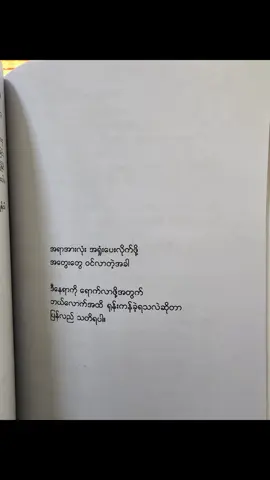 အရာအားလုံး အရှုံးပေးလိုက်ဖို့
အတွေးတွေ ဝင်လာတဲ့အခါ
ဒီနေရာကို ရောက်လာဖို့အတွက်
ဘယ်လောက်အထိ ရုန်းကန်ခဲ့ရသလဲဆိုတာ
ပြန်လည် သတိရပါ။